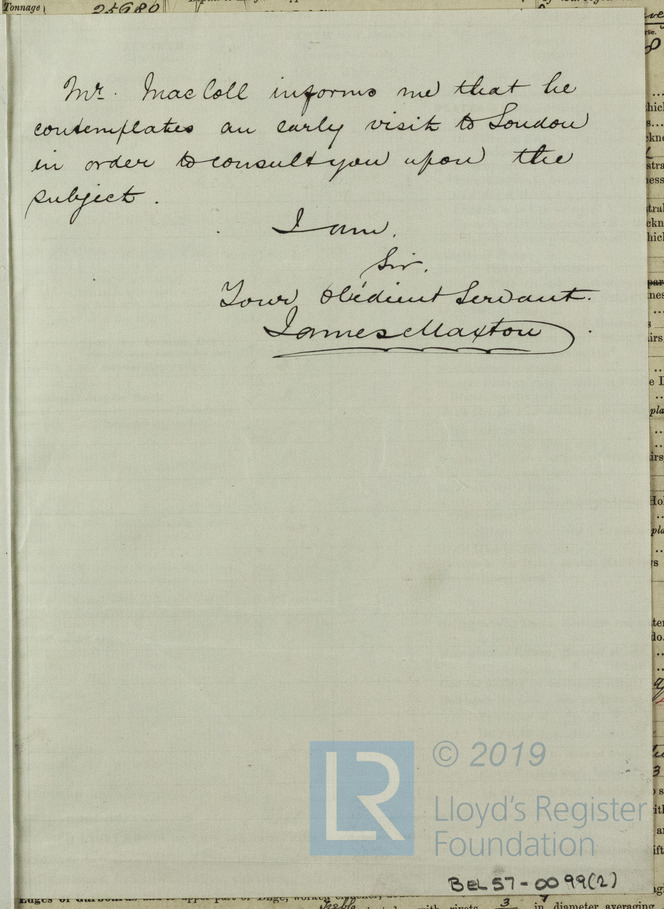 Tonnage 25680
Mr. MacColl informs me that he
contemplates an early visit to London
in order to consult you upon the
subject.
I am,
Sir,
Your obedient Servant.
James Maxton
LR
© 2019
Lloyd's Register
Foundation
BEL57-0099(2)
in diameter averaging